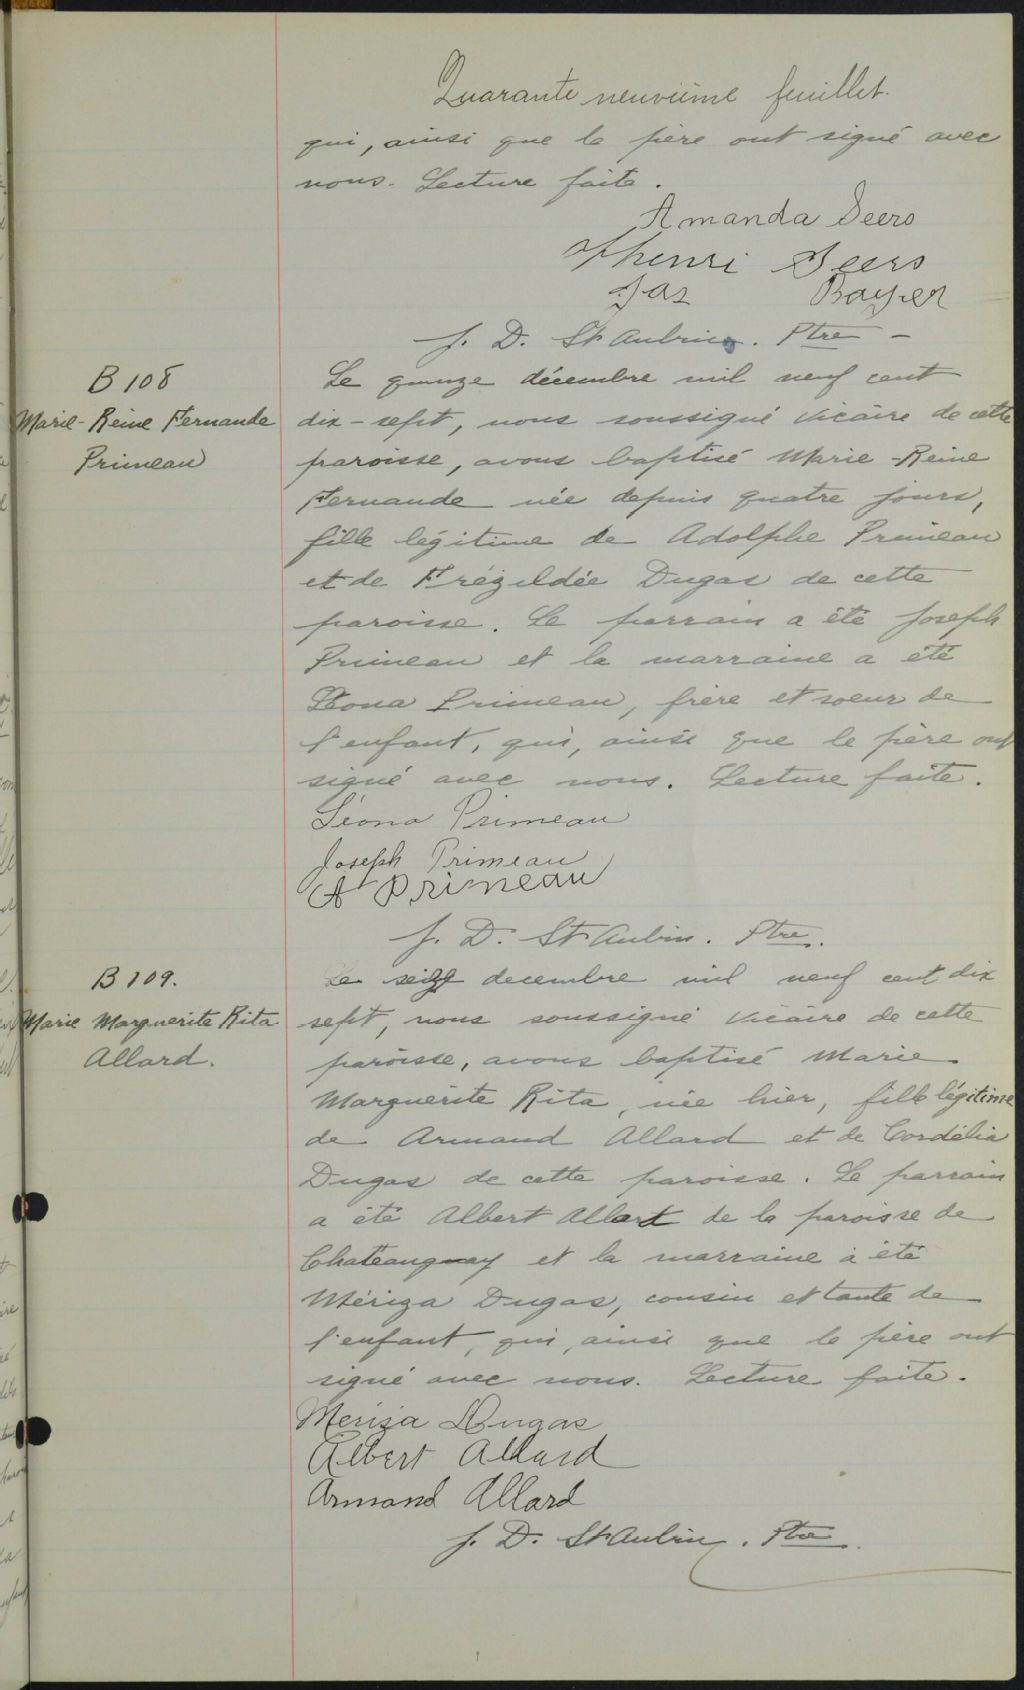 Quarante neuvième feuillet.
qui, ainsi que le père ont signé avec
nous. Lecture faite.
Amanda Seers
Henri Seers
Jas Boyer
J. D. St Aubin. Ptre
B 108
Marie-Reine Fernande
Primeau
Le quinze décembre mil neuf cent
dix-sept, nous soussigné Vicaire de cette
paroisse, avons baptisé Marie-Reine
Fernande née depuis quatre jours,
fille légitime de Adolphe Primeau
et de Frézildée Dugas de cette
paroisse. Le parrain a été Joseph
Primeau et la marraine a été
Léona Primeau, frère et soeur de
l'enfant, qui, ainsi que le père ont
signé avec nous. Lecture faite.
Léona Primeau
Joseph Primeau
A Primeau
J. D. St Aubin. Ptre.
B 109.
Marie Marguerite Rita
Allard.
Le seize decembre mil neuf cent dix
sept, nous soussigné Vicaire de cette
paroisse, avons baptisé Marie
Marguerite Rita, née hier, fille légitime
de Armand Allard et de Cordélia
Dugas de cette paroisse. Le parrain
a été Albert Allard de la paroisse de
Chateauguay et la marraine a été
Mériza Dugas, cousin et tante de
l'enfant, qui, ainsi que le père ont
signé avec nous. Lecture faite.
Meriza Dugas
Albert Allard
Armand Allard
J. D. St Aubin. Ptre.